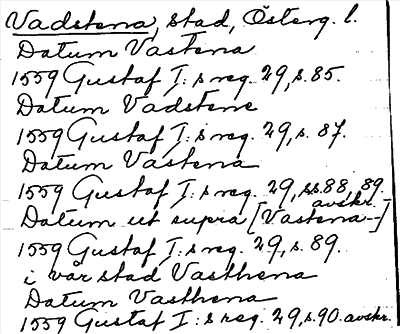 Vadstena, stad, Österg. l.
Datum Vastena
1559 Gustaf I:s reg. 29, s. 85.
Datum Vadstene
1559 Gustaf I:s reg. 29, s. 87.
Datum Vastena
1559 Gustaf I:s reg. 29, ss. 88, 89.
avskr.
Datum ut supra [Vastena--]
1559 Gustaf I:s reg. 29, s. 89.
i vår stad Vasthena
Datum Vasthena
1559 Gustaf I:s reg. 29, s. 90. avskr.